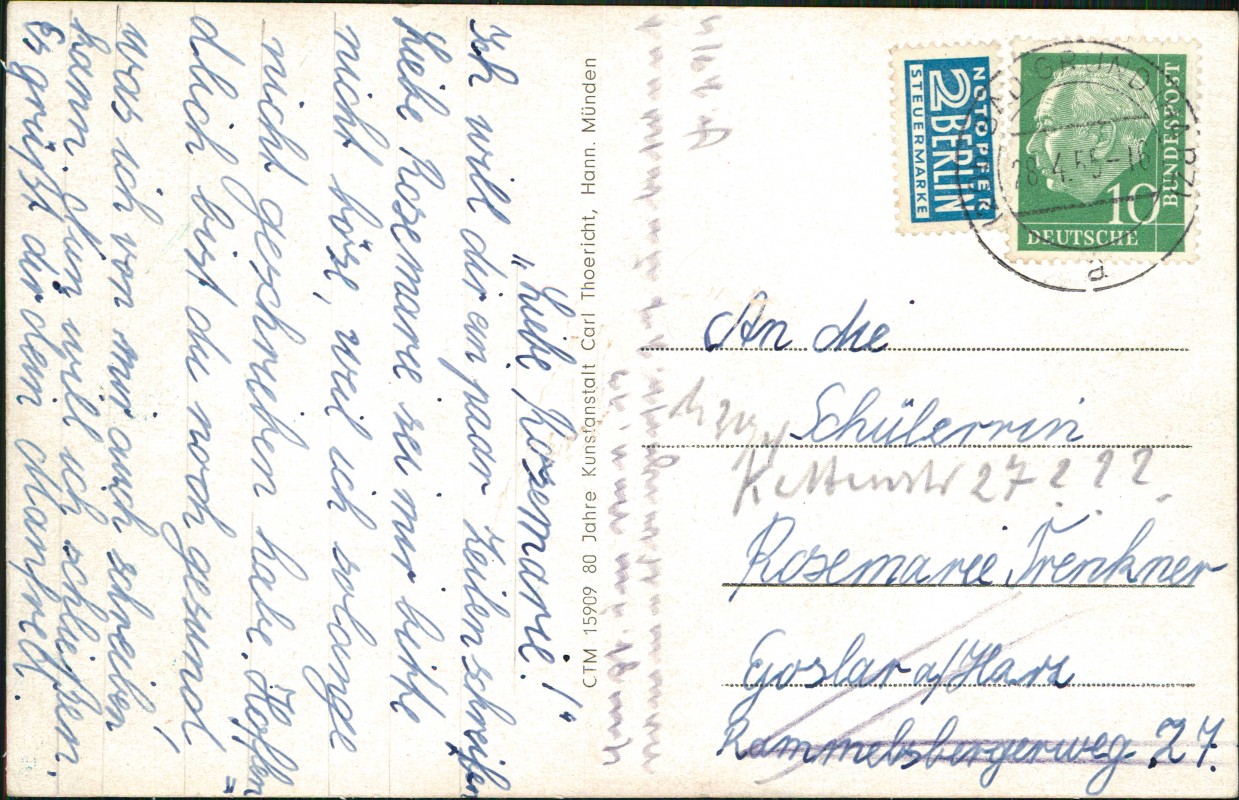 "Liebe Rosemarie!"
Ich will dir ein paar Zeilen schreiben
Liebe Rosemarie sei mir bitte
nicht böse, weil ich solange
nicht geschrieben habe. Hoffen=
dlich bist du noch gesund,
was ich von mir auch schreiben
kann. Nun will ich schließen.
Es grüßt dir dein Manfred.
CTM 15909 80 Jahre Kunstanstalt Carl Thoericht, Hann. Münden
NOTOPFER
2 BERLIN
STEUERMARKE
DEUTSCHE
BUNDESPOST
10
BAD GRUND
28.4.55-16
a
An die
Schülerrin
Kettenstr 27 2 2 2.
Rosemarie Trenkner
Goslar a/Harz
Rammelsbergerweg. 27.